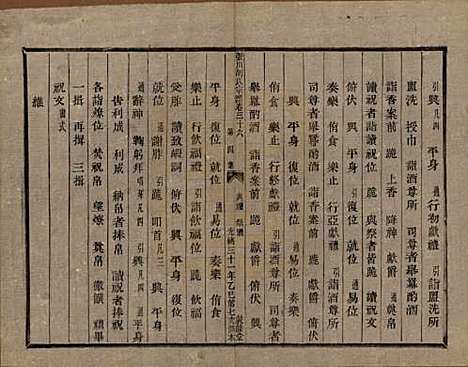 引興凡四 平身 通行初獻禮 引詣盥洗所
盥洗 授巾 詣酒尊所 司尊者舉冪酌酒
詣香案前 跪 上香 降神 獻爵 通奠帛
讀祝者詣讀祝位 跪 與祭者皆跪 讀祝
俯伏 興 平身 引復位 通易位
奏樂 俯食 樂止 行亞獻禮 引詣酒尊所
司尊者舉冪酌酒 詣香案前 跪 獻爵 俯伏
興 平身 復位 通易位 奏樂
俯食 樂止 行終獻禮 引詣酒尊所 司尊者
舉冪酌酒 詣香案前 跪 獻爵 俯伏 興
卷三十六 第四集 光緒三十一年乙巳
平身 復就位 通易位 奏樂 俯食
樂止 行飲福禮 引詣飲福位 跪 飲福酒
受胙 讀致嘏詞 俯伏 興 平身 復位
通辭神 鞠躬拜 引跪 叩首凡三 興
通告利成 利成 納帛者捧帛 讀祝者捧祝
各詣燎位 焚祝帛 望燎 奠帛 徹饌 禮畢
一揖 再揖 三揖
祝文書式
維